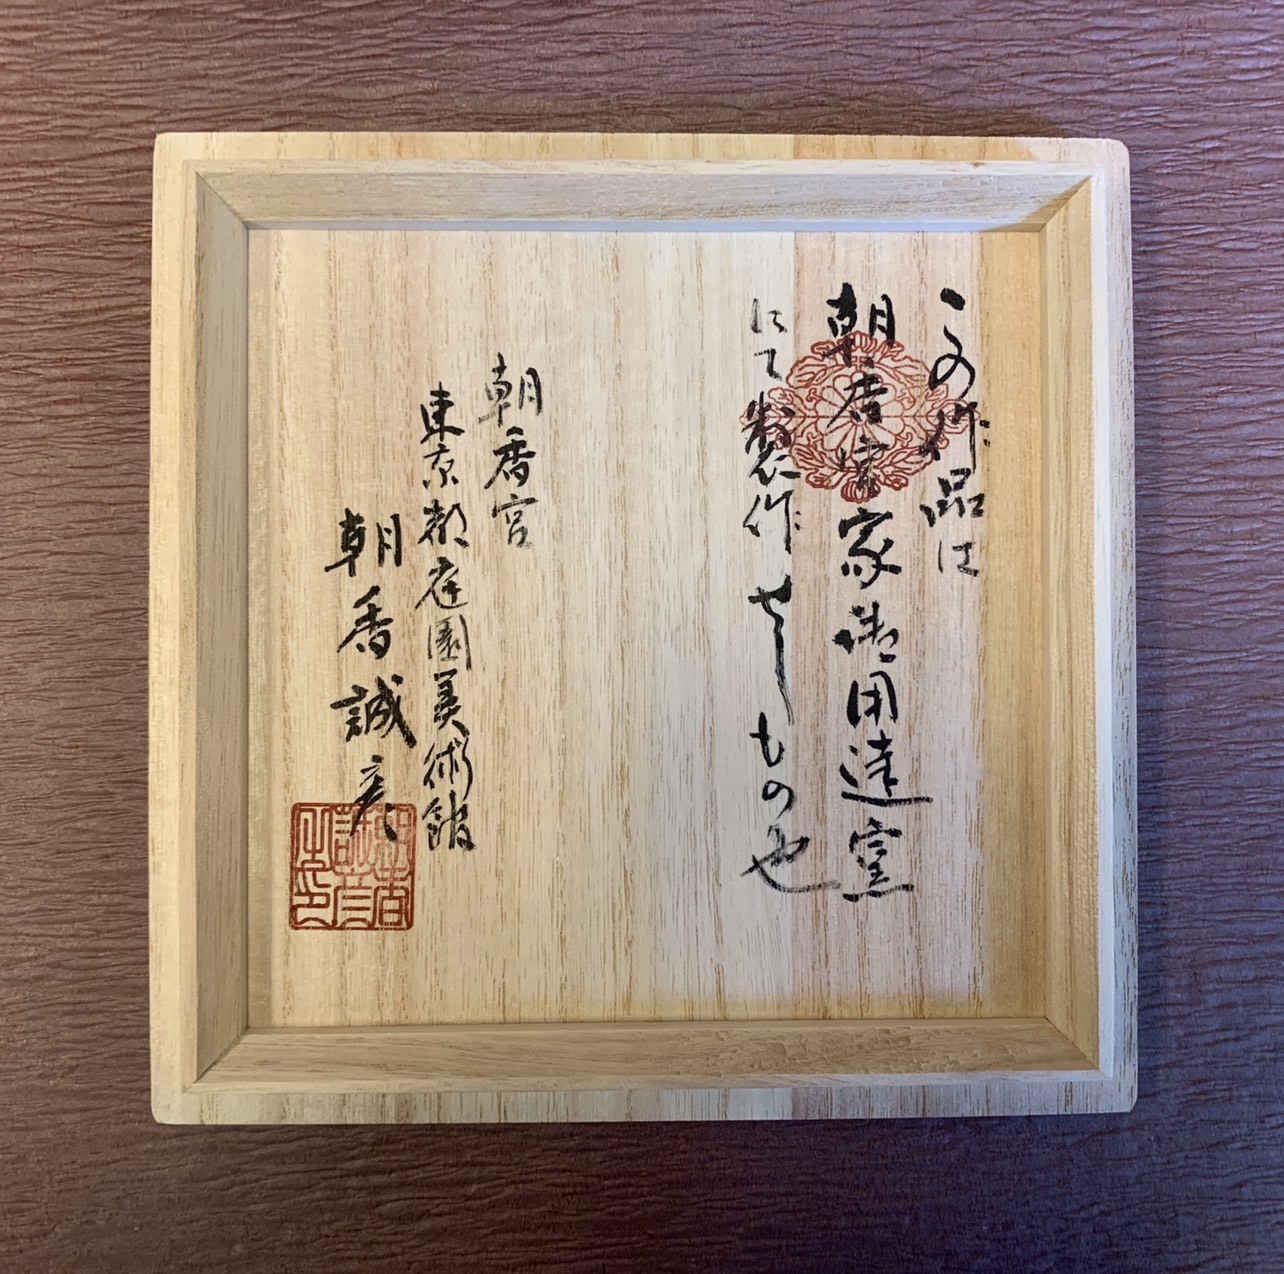 この作品は
朝香宮家御用達窯
にて製作せしもの也
朝香宮
東京都庭園美術館
朝香誠彦
朝香
誠彦
之印